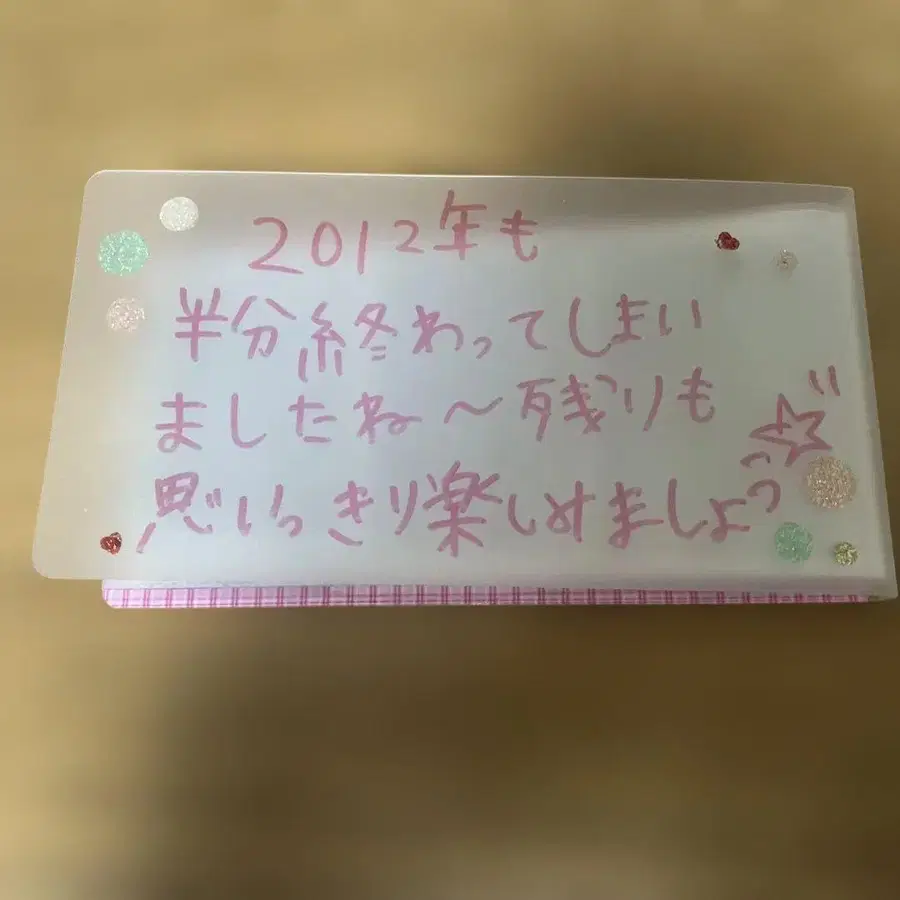 2012年も
半分終わってしまい
ましたね～残りも
思いっきり楽しみましょう☆